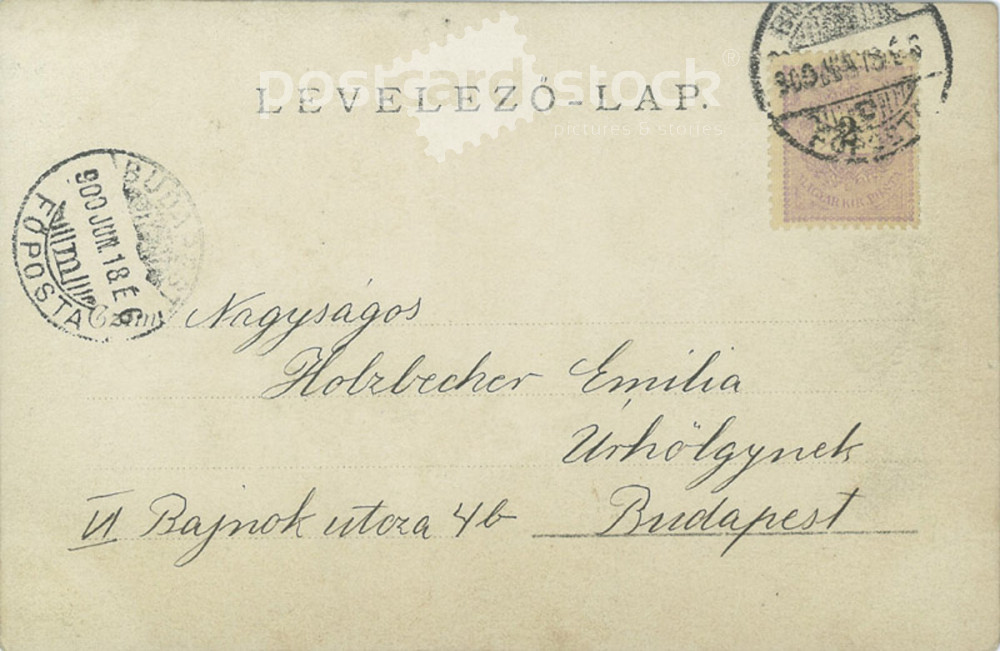 postcardstock®
pictures & stories
LEVELEZŐ-LAP.
2
MAGYAR KIR. POSTA
BUDAPEST
900 JUN. 18 É 6
FŐPOSTA
Czím
Nagyságos
Holzbecher Emilia
Úrhölgynek
VI Bajnok utcza 4b Budapest